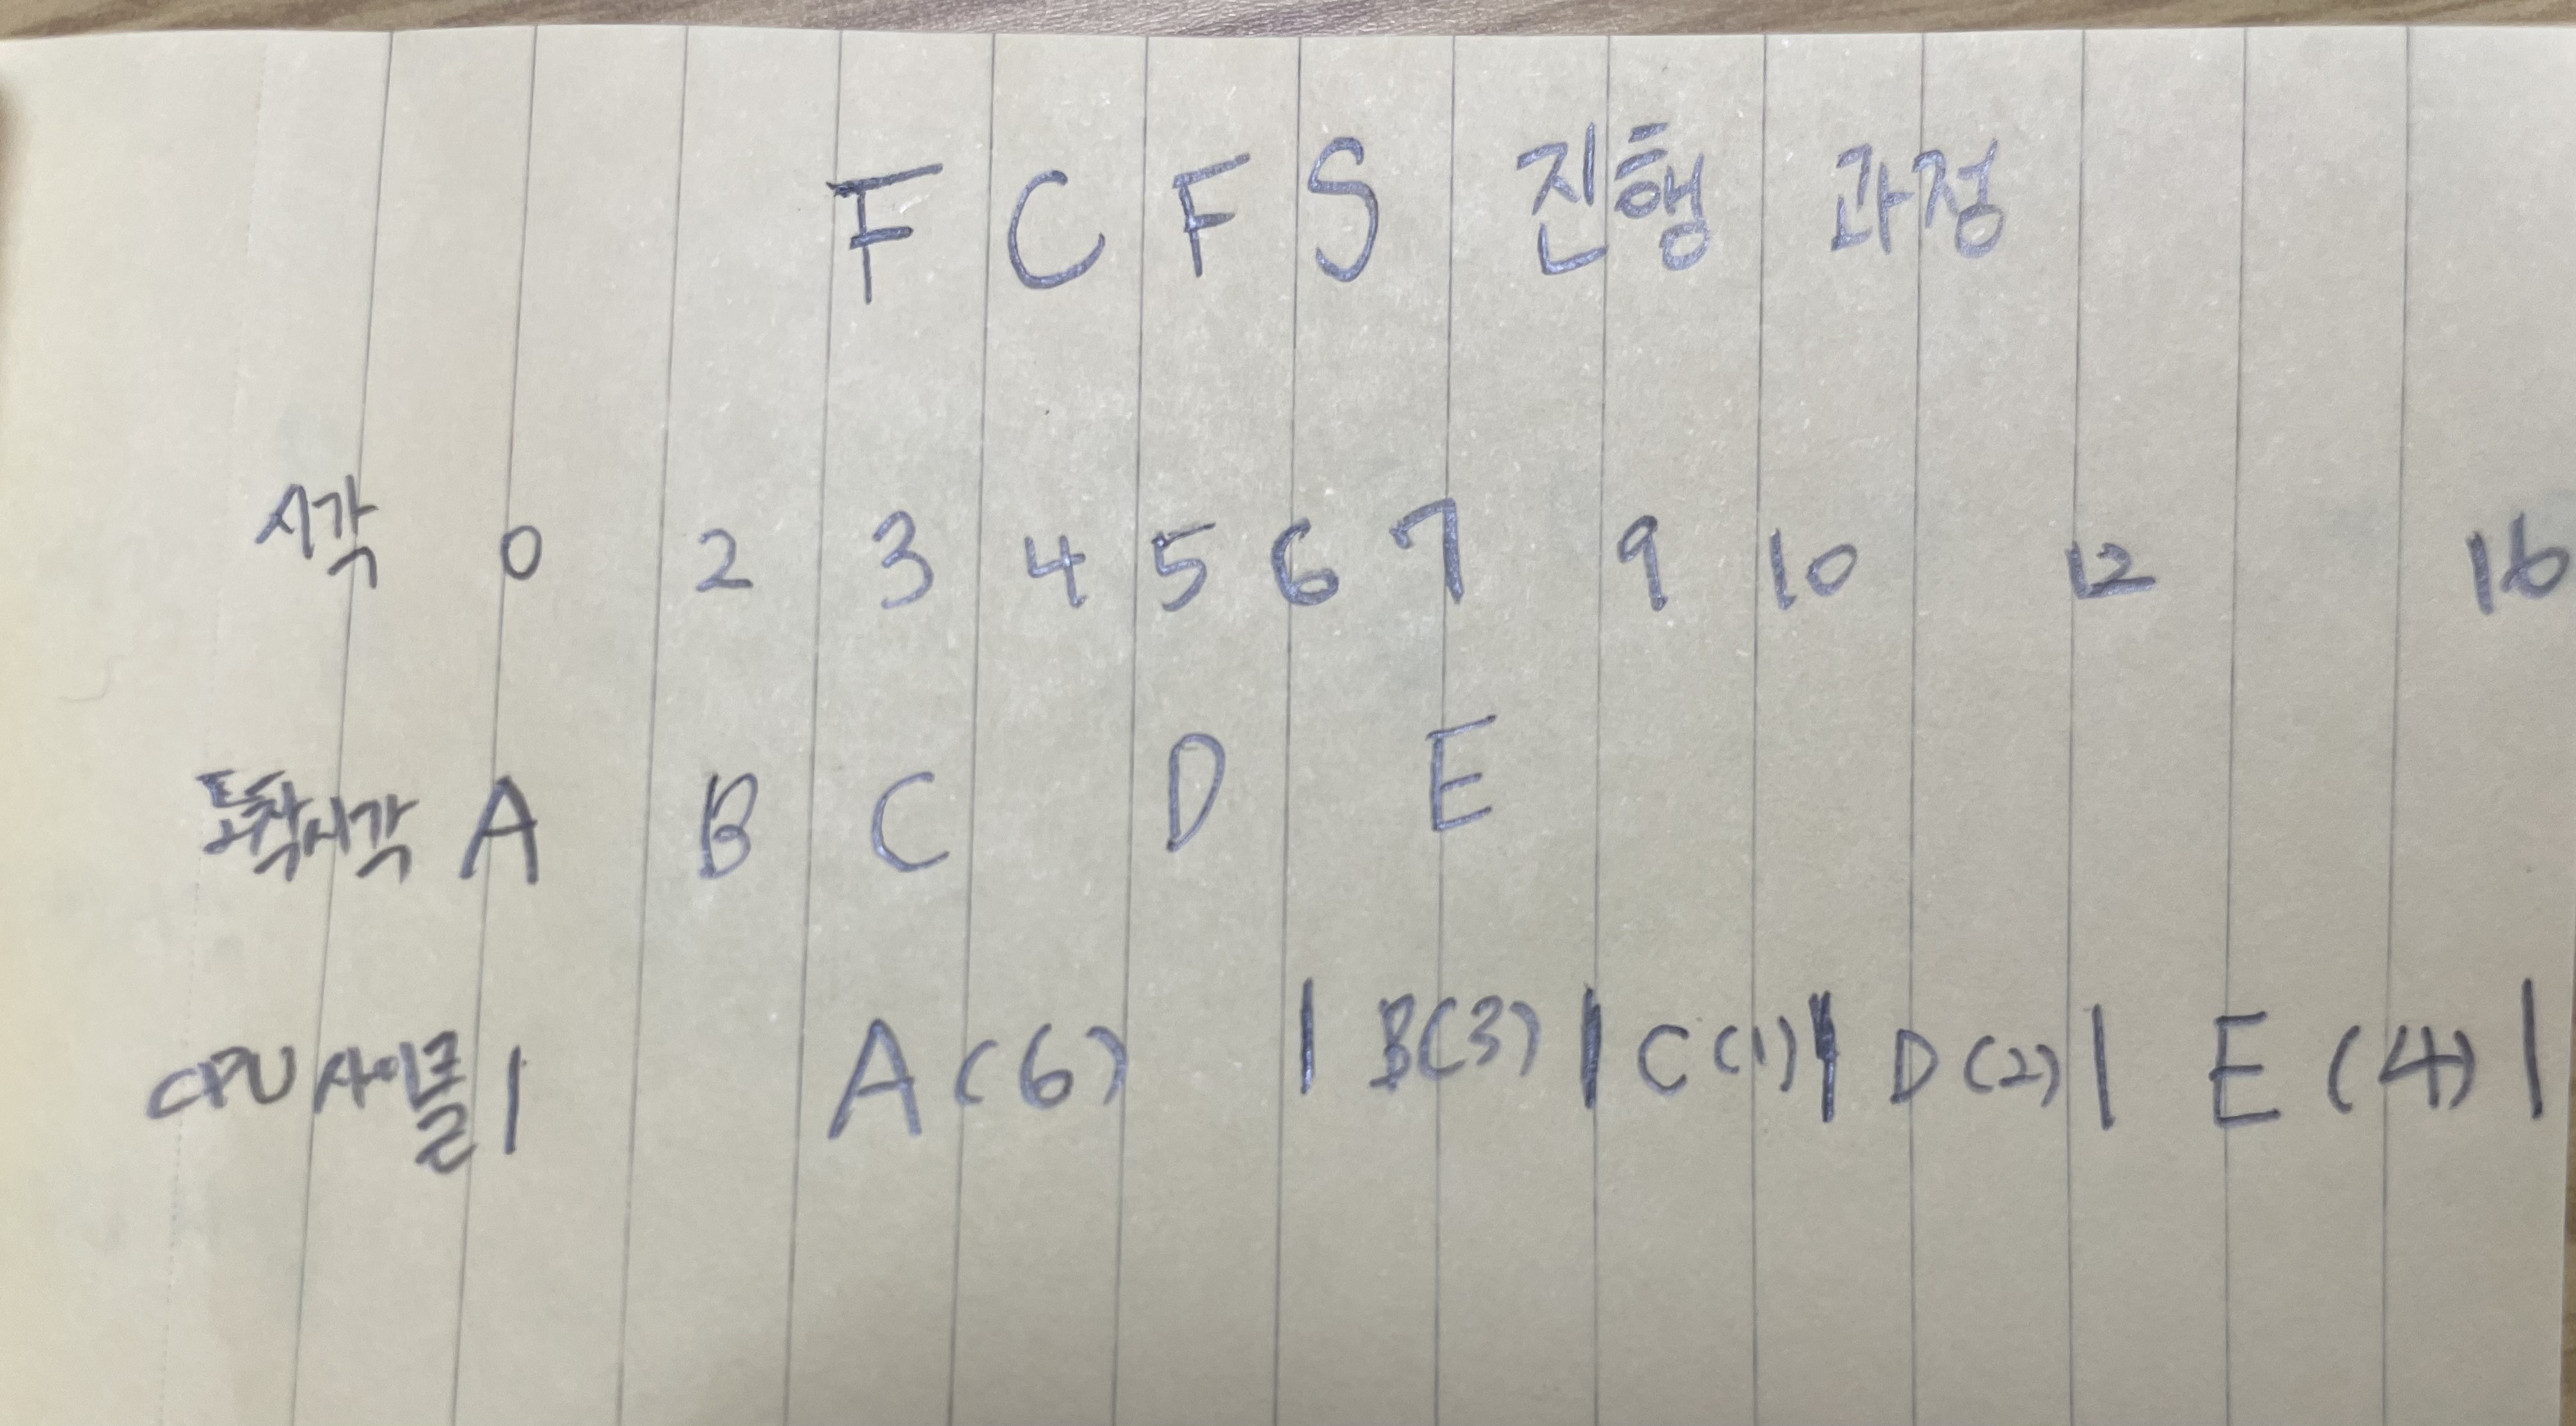 FCFS 진행 과정
시각 0 2 3 4 5 6 7 9 10 12 16
도착시각 A B C D E
CPU 사이클 | A(6) | B(3) | C(1) | D(2) | E(4) |